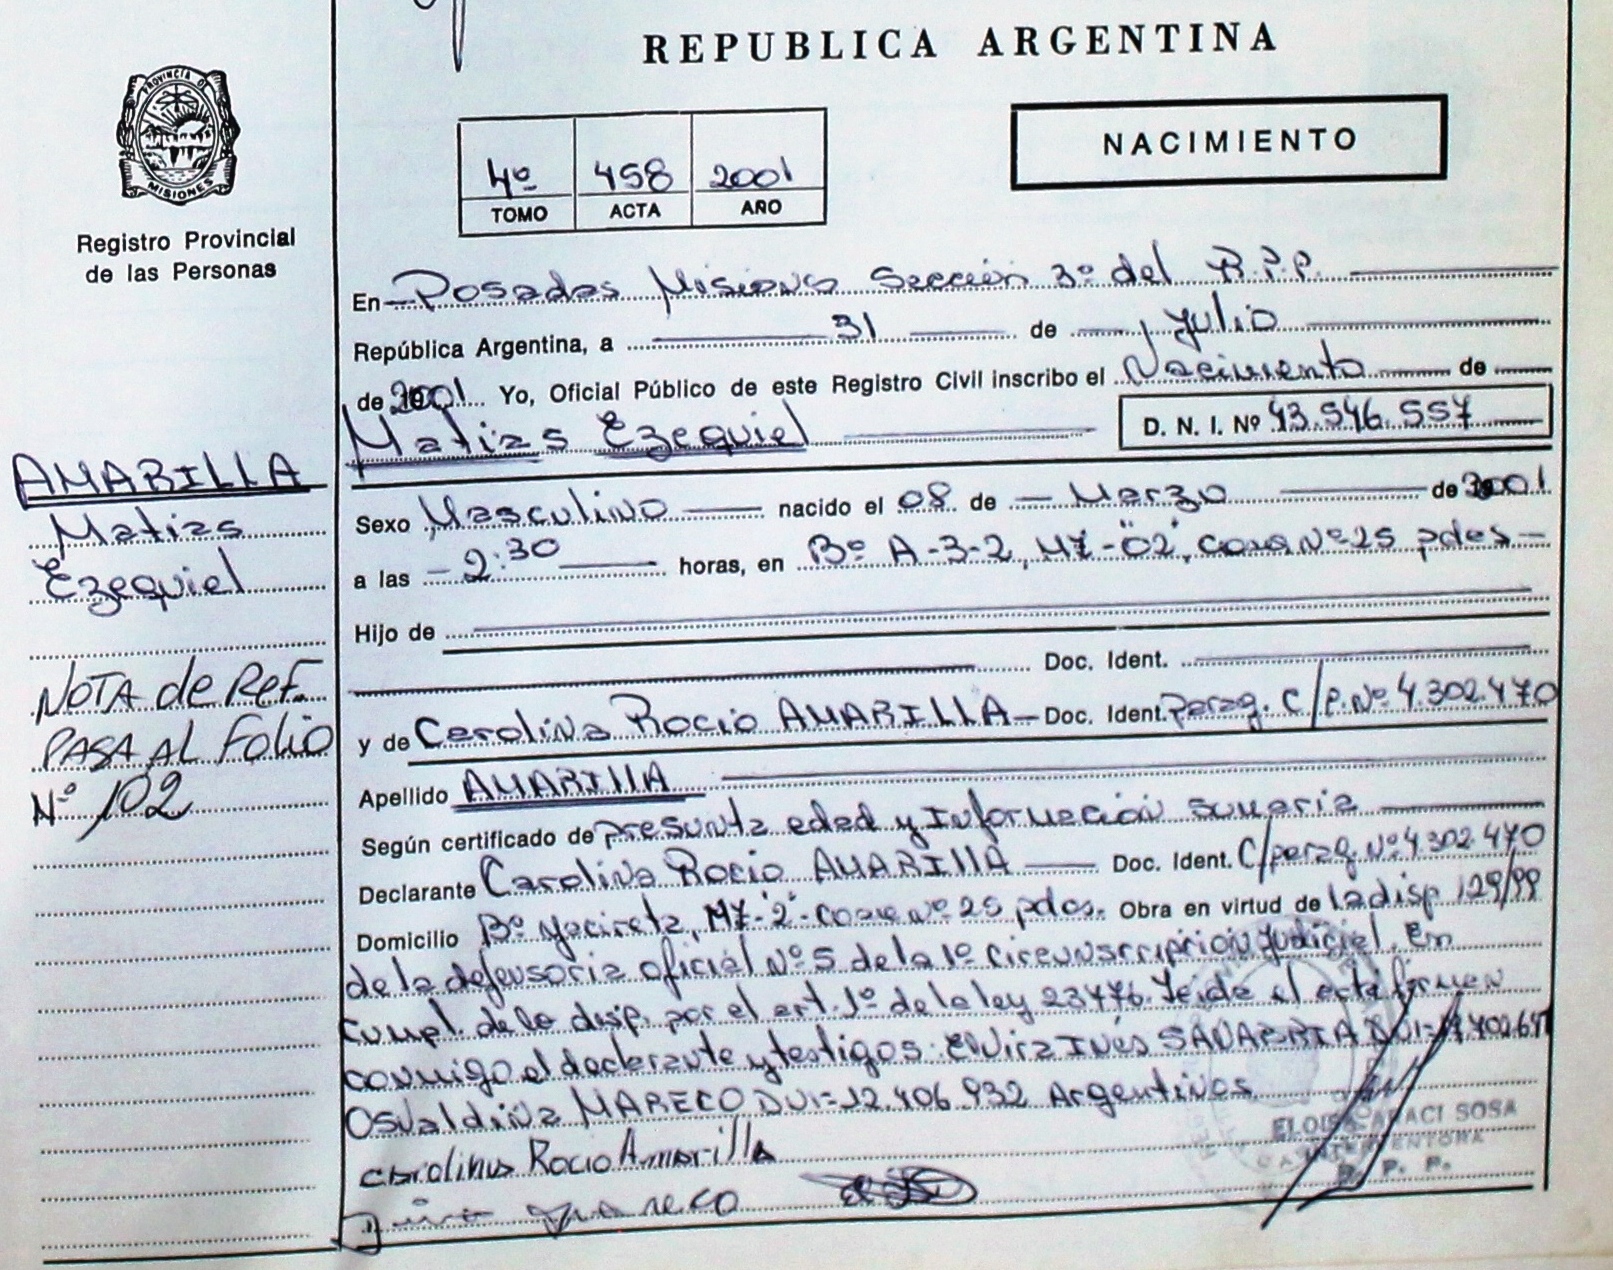 REPUBLICA ARGENTINA
PROVINCIA DE
MISIONES
Registro Provincial
de las Personas
4º 458 2001
TOMO ACTA AÑO
NACIMIENTO
En Posadas Misiones Sección 3º del R.P.P.
República Argentina, a 31 de Julio
de 2001 Yo, Oficial Público de este Registro Civil inscribo el Nacimiento de
Matias Ezequiel D. N. I. Nº 43.546.557
AMARILLA
Matias
Ezequiel
Sexo Masculino nacido el 08 de Marzo de 2001
a las 2:30 horas, en Bº A-3-2, MZ-"02", casa Nº 25 pdas
Hijo de
Doc. Ident.
y de Carolina Rocio AMARILLA Doc. Ident. parag. C/P. Nº 4.302.470
NOTA de REF.
PASA AL Folio
Nº 102
Apellido AMARIllA
Según certificado de presunta edad y Información sumaria
Declarante Carolina Rocio AMARIllA Doc. Ident. C/parag. Nº 4.302.470
Domicilio Bº yacireta, MZ-"2"- casa Nº 25 pdas. Obra en virtud de la disp 129/99
de la defensoria oficial Nº 5 de la 1º circunscripcion Judicial. En
cumpl. de lo disp. por el art. 1º de la ley 23476. Leida el acta firman
conmigo el declarante y testigos: Inés SANABRIA DNI=
Osvaldina MARECO DNI=12.406.932 Argentinos
Carolina Rocio Amarilla
MARECO
ARACI SOSA
INTERVENTORA
R. P. P.